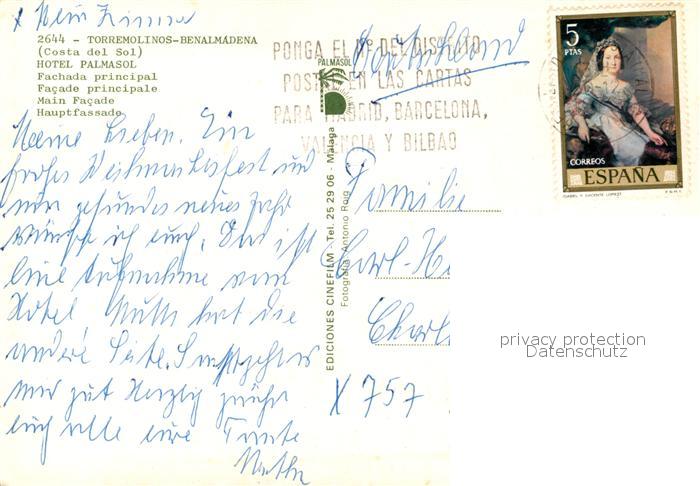 x Mein Zimmer
2644 - TORREMOLINOS-BENALMÁDENA
(Costa del Sol)
HOTEL PALMASOL
Fachada principal
Façade principale
Main Façade
Hauptfassade
Meine Lieben. Ein
frohes Weihnachtsfest und
ein gesundes neues Jahr
wünsche ich euch. Das ist
eine Aufnahme vom
Hotel
andere Seite. Sonst geht es
mir gut Herzlich grüßt
euch alle eure Tante
PALMASOL
EDICIONES CINEFILM Tel. 25 29 06 - Málaga
Fotografía Antonio Roig
PONGA EL Nº DEL DISTRITO
POSTAL EN LAS CARTAS
PARA MADRID, BARCELONA,
VALENCIA Y BILBAO
Deutschland
Familie
Carl-H
Charl
X 757
5
PTAS
CORREOS
ESPAÑA
ISABEL Y VICENTE LOPEZ
F.N.M.T.
privacy protection
Datenschutz